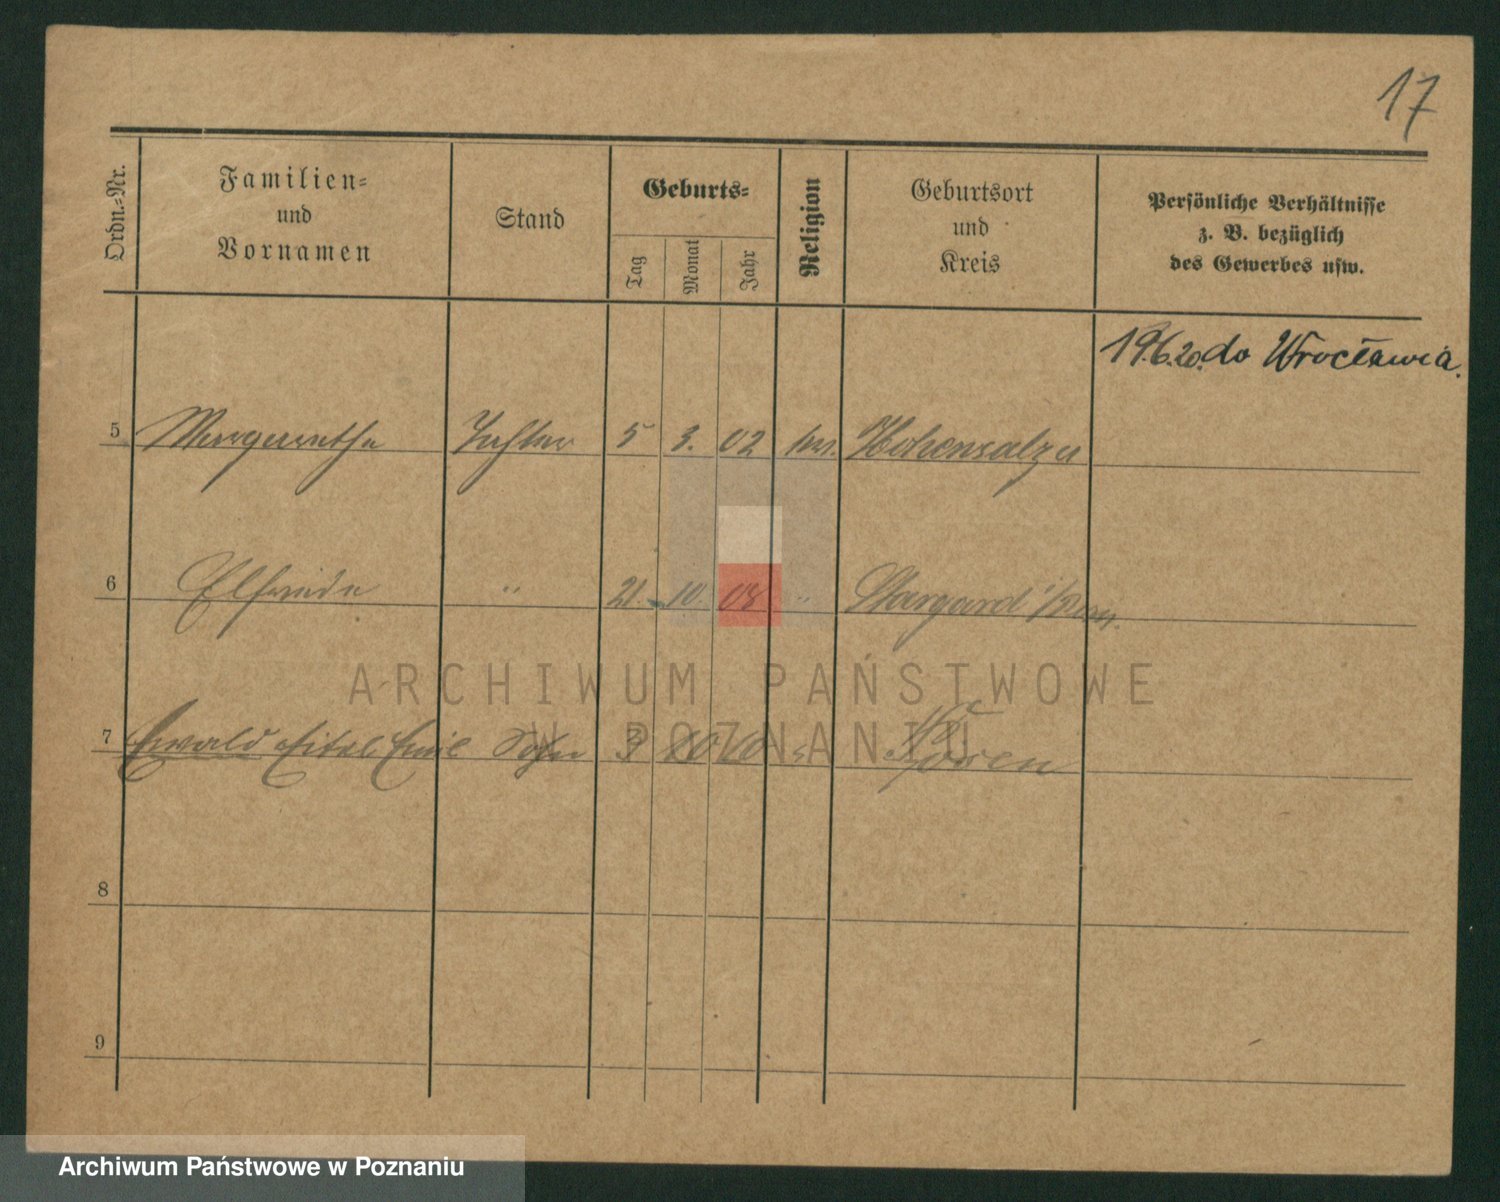 17
Ordn.-Nr.
Familien-
und
Vornamen
Stand
Geburts-
Tag
Monat
Jahr
Religion
Geburtsort
und
Kreis
Persönliche Verhältnisse
z. B. bezüglich
des Gewerbes usw.
19.6.20. do Wrocławia.
5 Margarethe Tochter 5 3. 02 Hohensalza
6 Elfriede " 21. 10. 08 " Stargard i/Pom.
ARCHIWUM PAŃSTWOWE
W POZNANIU
7 Ewald Eitel Emil Sohn 3 10 10 " Posen
8
9
Archiwum Państwowe w Poznaniu